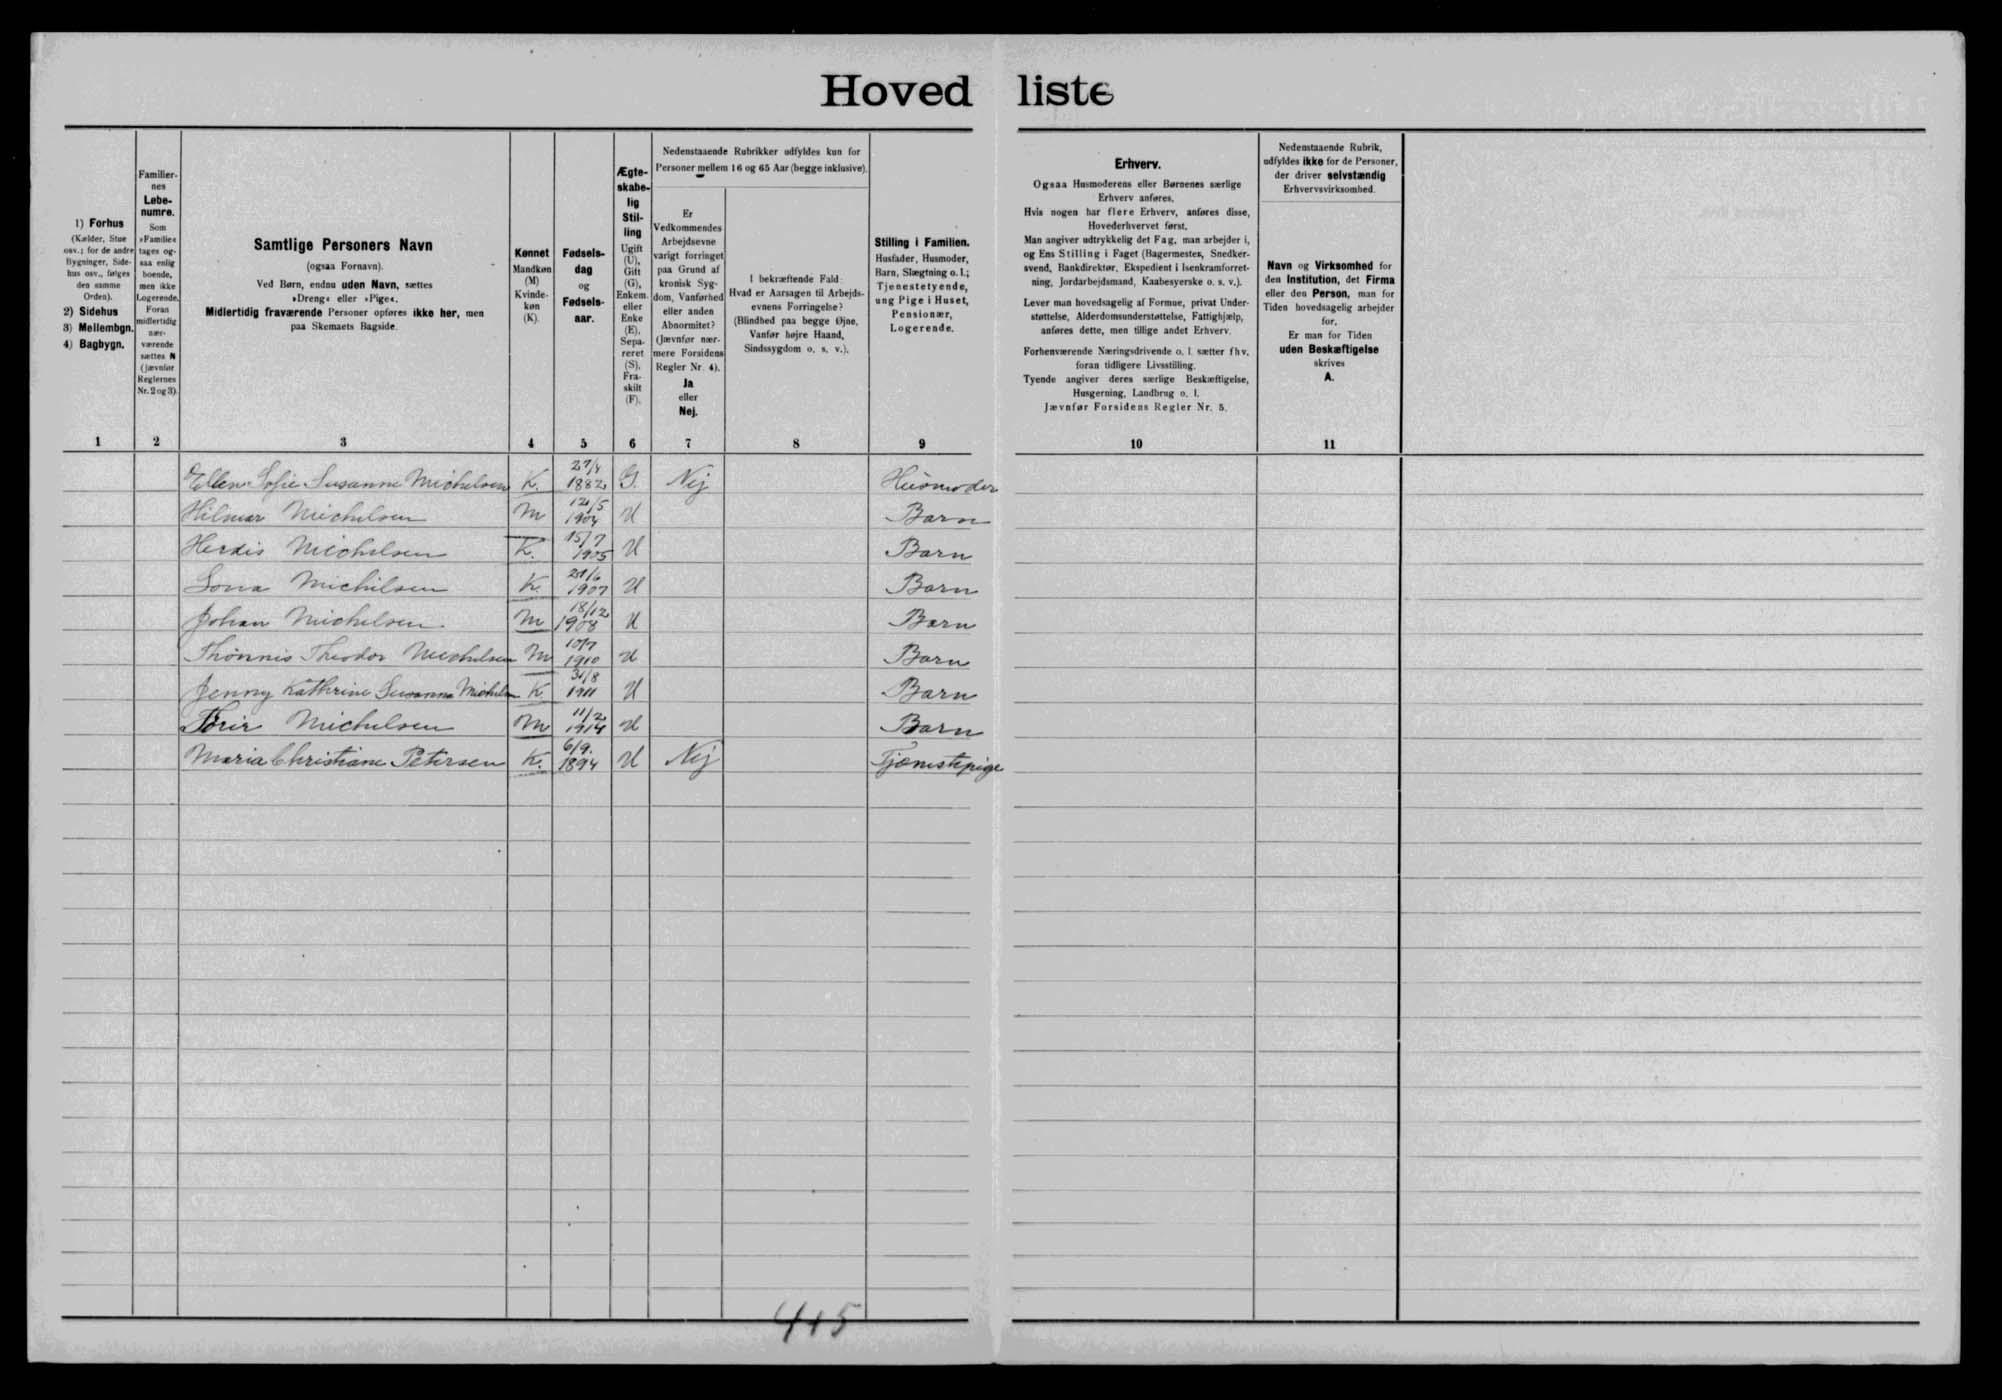 Hovedliste
1) Forhus
(Kælder, Stue
osv.; for de andre
Bygninger, Side-
hus osv., følges
den samme
Orden).
2) Sidehus
3) Mellembgn.
4) Bagbygn.
1
Familier-
nes
Løbe-
numre.
Som
»Familie«
tages og-
saa enlig
boende,
men ikke
Logerende.
Foran
midlertidig
nær-
værende
sættes N
(jævnfør
Reglernes
Nr. 2 og 3).
2
Samtlige Personers Navn
(ogsaa Fornavn).
Ved Børn, endnu uden Navn, sættes
»Dreng« eller »Pige«.
Midlertidig fraværende Personer opføres ikke her, men
paa Skemaets Bagside.
3
Kønnet
Mandkøn
(M)
Kvinde-
køn
(K).
4
Fødsels-
dag
og
Fødsels-
aar.
5
Ægte-
skabe-
lig
Stil-
ling
Ugift
(U),
Gift
(G),
Enkem.
eller
Enke
(E),
Sepa-
reret
(S),
Fra-
skilt
(F).
6
Nedenstaaende Rubrikker udfyldes kun for
Personer mellem 16 og 65 Aar (begge inklusive).
Er
Vedkommendes
Arbejdsevne
varigt forringet
paa Grund af
kronisk Syg-
dom, Vanførhed
eller anden
Abnormitet?
(Jævnfør nær-
mere Forsidens
Regler Nr. 4).
Ja
eller
Nej.
7
I bekræftende Fald:
Hvad er Aarsagen til Arbejds-
evnens Forringelse?
(Blindhed paa begge Øjne,
Vanfør højre Haand,
Sindssygdom o. s. v.).
8
Stilling i Familien.
Husfader, Husmoder,
Barn, Slægtning o. l.;
Tjenestetyende,
ung Pige i Huset,
Pensionær,
Logerende.
9
Erhverv.
Ogsaa Husmoderens eller Børnenes særlige
Erhverv anføres.
Hvis nogen har flere Erhverv, anføres disse,
Hovederhvervet først.
Man angiver udtrykkelig det Fag, man arbejder i,
og Ens Stilling i Faget (Bagermester, Snedker-
svend, Bankdirektør, Ekspedient i Isenkramforret-
ning, Jordarbejdsmand, Kaabesyerske o. s. v.).
Lever man hovedsagelig af Formue, privat Under-
støttelse, Alderdomsunderstøttelse, Fattighjælp,
anføres dette, men tillige andet Erhverv.
Forhenværende Næringsdrivende o. l. sætter fhv.
foran tidligere Livsstilling.
Tyende angiver deres særlige Beskæftigelse,
Husgerning, Landbrug o. l.
Jævnfør Forsidens Regler Nr. 5.
10
Nedenstaaende Rubrik,
udfyldes ikke for de Personer,
der driver selvstændig
Erhvervsvirksomhed.
Navn og Virksomhed for
den Institution, det Firma
eller den Person, man for
Tiden hovedsagelig arbejder
for.
Er man for Tiden
uden Beskæftigelse
skrives
A.
11
Ellen Sofie Susanne Michelsen K. 27/4 1882 G. Nej Husmoder
Hilmar Michelsen M 12/5 1904 U Barn
Herdis Michelsen K. 15/7 1905 U Barn
Sona Michelsen K. 1907 U Barn
Johan Michelsen M 18/12 1908 U Barn
Thónnis Theodor Michelsen M 1910 U Barn
Jenny Kathrine Susanna Michelsen K. 31/8 1911 U Barn
Michelsen M 11/2 1914 U Barn
Maria Christiane Petersen K. 6/9. 1894 U Nej Tjenestepige
415